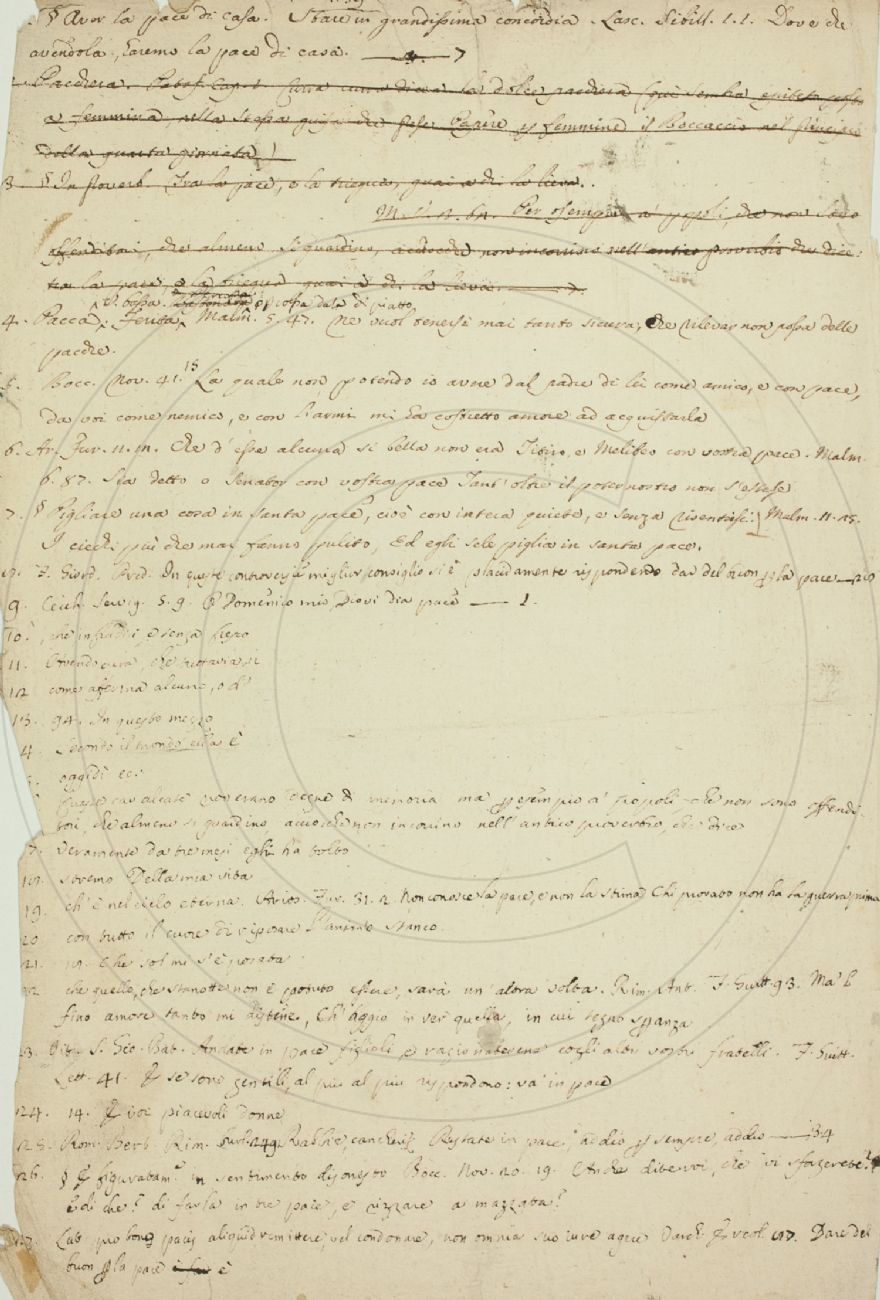 § Aver la pace di casa. Stare in grandissima concordia. Lasc. Sibill. 1.1. Dove che
avendola, faremo la pace di casa.
Pacchera. Pataff. Cap. 1. dolce pacchera (qui sembra epiteto
a femmina, nella stessa guisa che femmine il Boccaccio nel
della quarta giornata)
3. § In Proverb. Tra la pace, e la triegua, guai a chi la lieva.
M. V. Per esempio a' popoli, che non sono
offenditori, che almeno si guardino, acciocchè non incorrino nell'antico proverbio che dice:
tra la pace, e la triegua guai a chi la lieva.
4. Pacca. Ferita, Malm. 5. 47. Ne vuol tenersi mai tanto sicura, Che rilevar non possa delle
pacche.
5. Bocc. Nov. 41. 15 La quale non potendo io avere dal padre di lei come amico, e con pace,
da voi come nemico, e con l'armi mi ha costretto amore ad acquistarla
6. Ar. Fur. 11. 12. Che d'esse alcuna sì bella non era Titiro, e Melibeo con vostra pace. Malm.
6. 87. Sia detto o Senator con vostra pace Tant'oltre il poter nostro non s'estese
7. § Pigliare una cosa in santa pace, cioè con intera quiete, e senza risentirsi. Malm. 11. 25.
I ciechi più che mai fanno pulito, Ed egli sele piglia in santa pace.
F. Giord. Pred. In queste controversie miglior consiglio si è placidamente rispondendo dar del buon per la pace
9. Cecch. Servig. 5. 9. O Domenico mio, Diovi dia pace — 1.
10. che infastidisi, e senza
11. Avendo cura, che
12 come afferma alcuno, o d'
13. 94. In questo mezzo
4. Secondo il mondo ella è
oggidì ec.
Queste cavalcate non erano degne di memoria ma per esempio a' popoli che non sono offendi-
tori, che almeno si guardino, acciocchè non incorrino nell'antico proverbio, che dice
veramente da tre mesi egli ha tolto
stremo Della mia vita
19. ch'è nel cielo eterna. Arios. Fur. 31. 2. Non conosce la pace, e non la stima Chi provato non ha la guerra prima
20 con tutto il cuore di riposare l'animo stanco.
21. 19. Che sol mi s'è
22 che quello, che stanotte non è potuto essere, sarà un'altra volta. Rim. Ant. F. Guitt. 93. Ma'l
fino amore tanto mi distene, Ch'aggio in ver quella, in cui tegno speranza
23. Vit. S. Gio. Bat. Andate in pace figlioli, e ragionatevene cogli altri vostri fratelli. F. Guitt.
Lett. 41. E se sono gentili, al più al più rispondono: va' in pace
24. 14. E voi piacevoli donne
25. Rom. Berb. Rim. burl. 249. Rabbie, cancheri, Restate in pace, addio per sempre, addio — 34
26. § E figuratam.e in sentimento disonesto Bocc. Nov. 20. 19. Anche ditevoi, che vi sforzerete?
E di che? di farla in tre pace, e rizzare a mazzata?
Lat. pro bono pacis aliquid remittere, vel condonare, non omnia suo iure agere Varch. Ercol. 97. Dare del
buon per la pace è